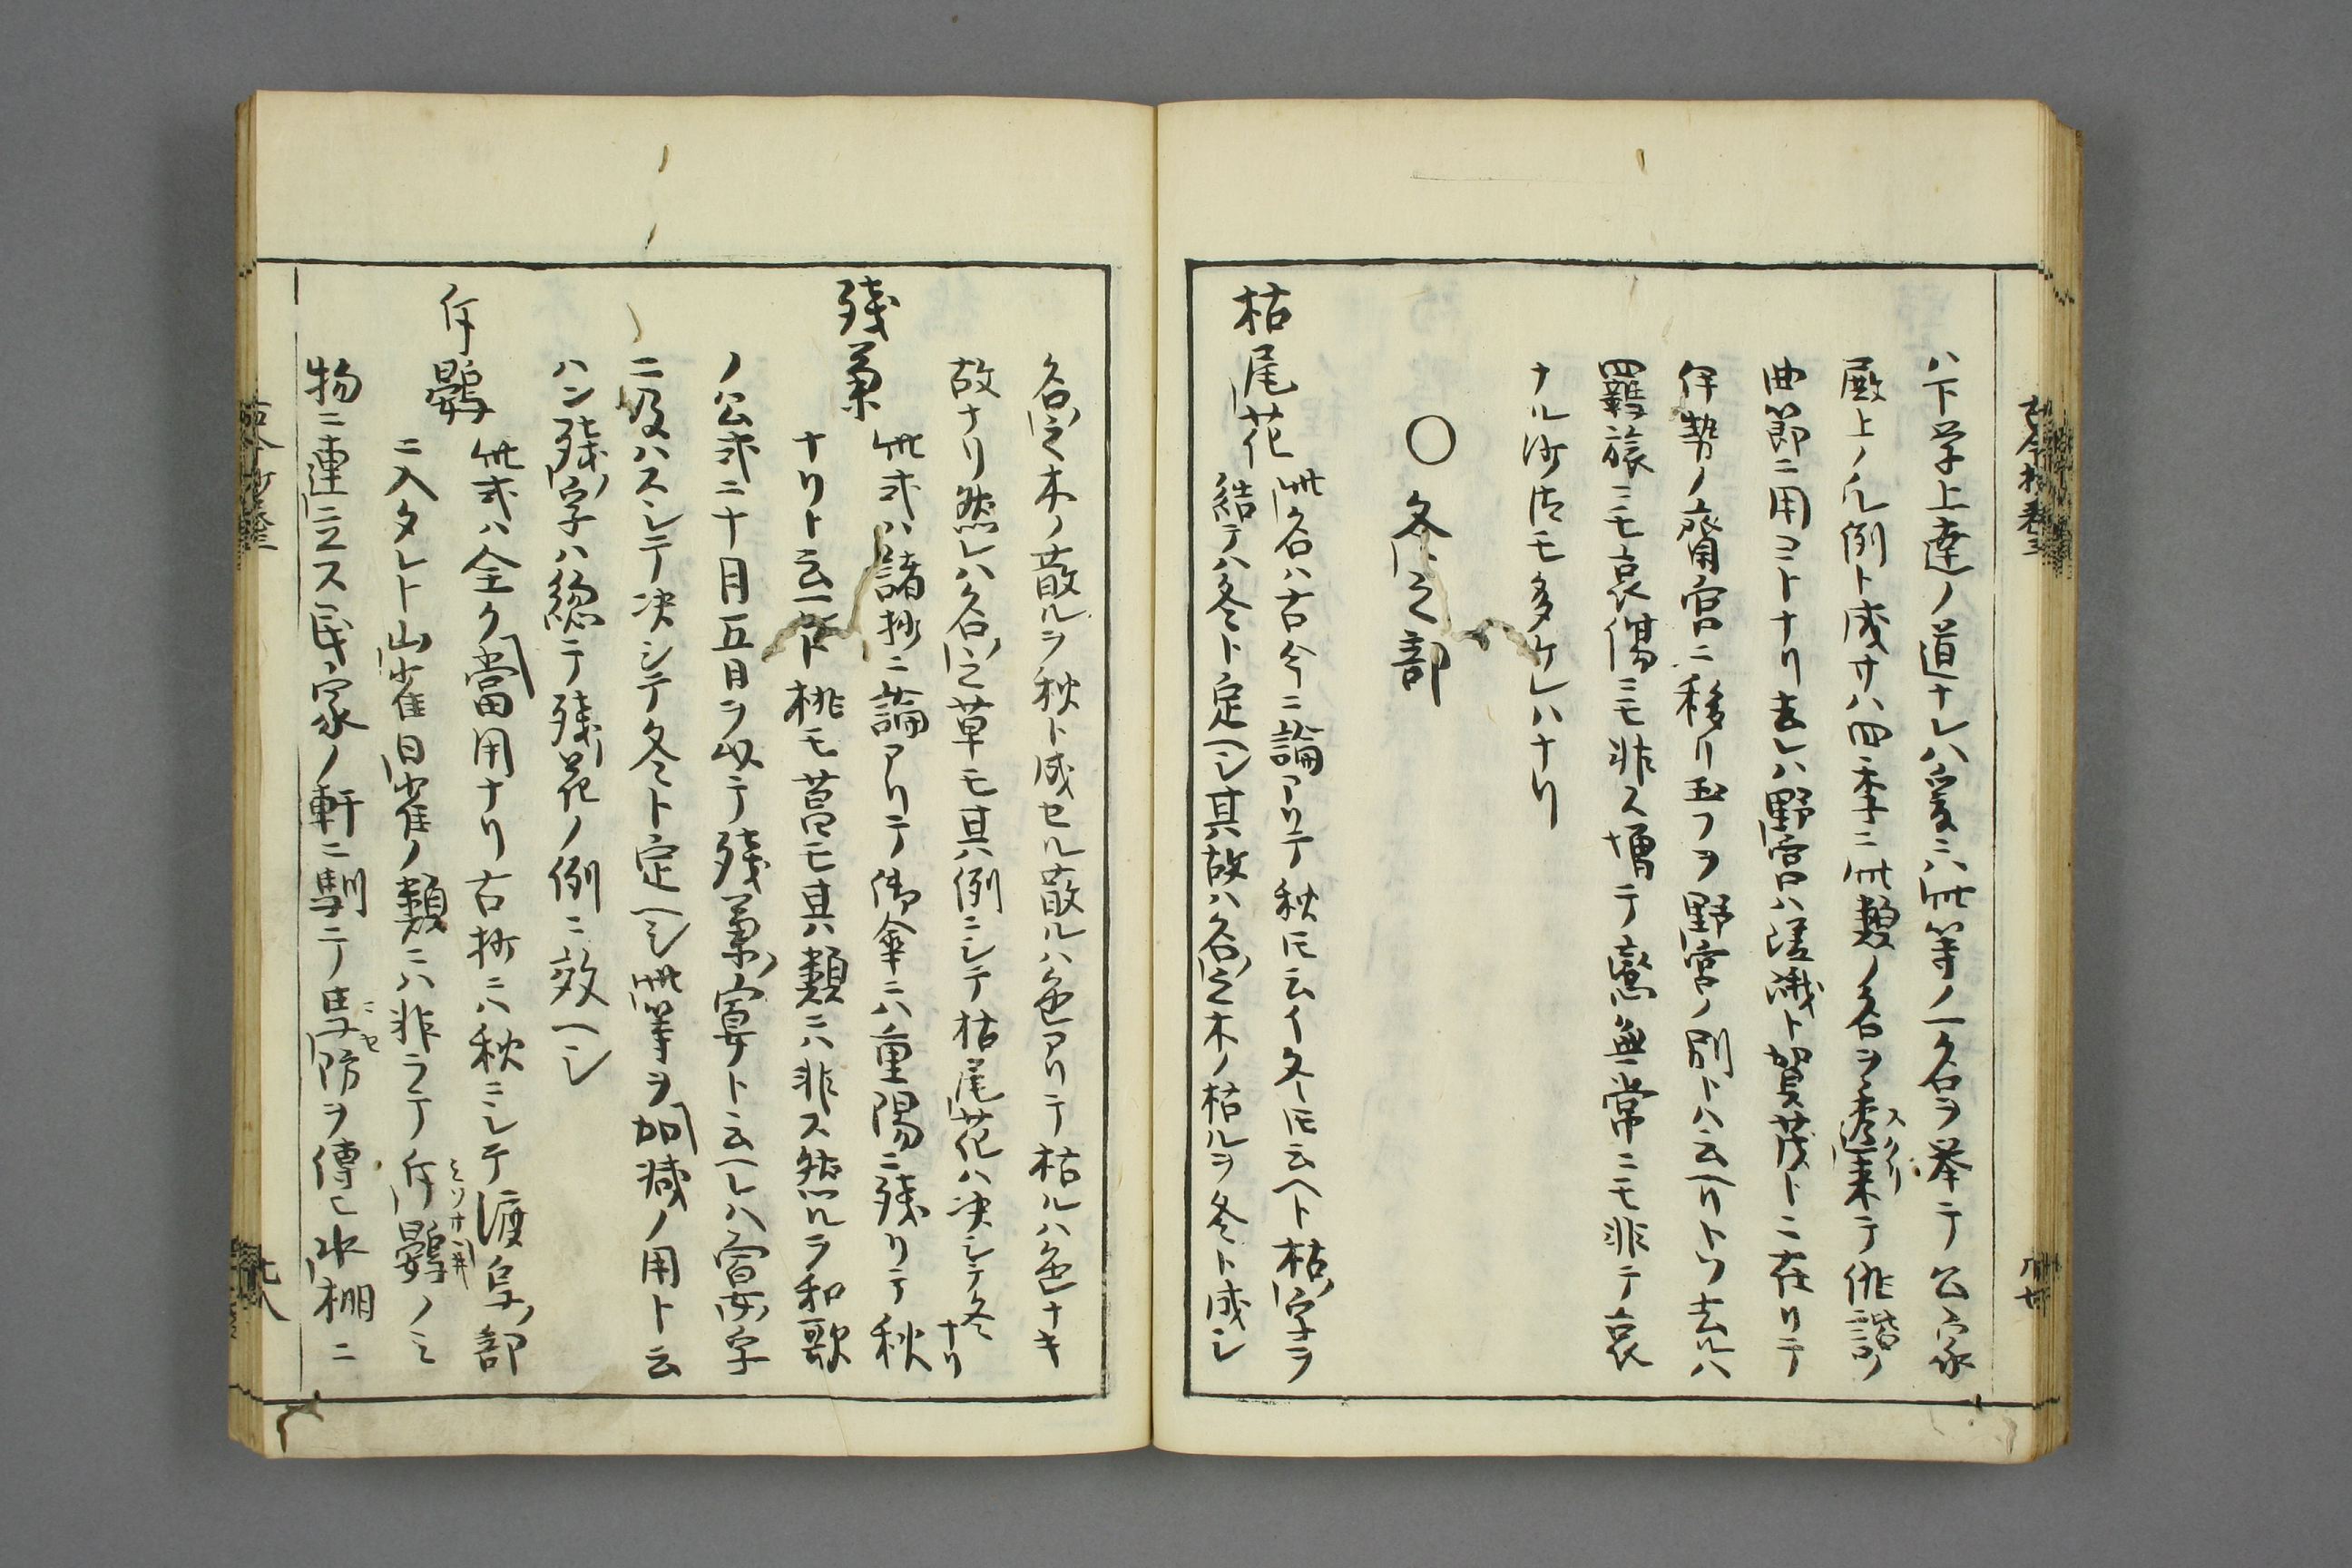 ハ下学上達ノ道ナレハ爰ニハ此等ノ一名ヲ挙テ公家
殿上ノ凡例ト成サハ四季ニ此類ノ名ヲ棄テ俳諧ノ
曲節ニ用コトナリ去レハ野宮ハ嵯峨ト賀茂トニ在リテ
伊勢ノ齋宮ニ移リ玉フヲ野宮ノ別トハ云ヘリトソ去レハ
羈旅ニモ哀傷ニモ非ス増テ無常ニモ非テ哀
ナル沙汰モ多ケレハナリ
〇冬之部
枯尾花 此名ハ古今ニ論アリテ秋圧云イ冬圧云ヘト枯ノ字ヲ
結テハ冬ト定ヘシ其故ハ名之木ノ枯ルヲ冬ト成シ
名之木ノ散ルヲ秋ト成セル散ルハ色アリテ枯ルハ色ナキ
故ナリ然レハ名之草モ其例ニシテ枯尾花ハ决シテ冬ナリ
残菊 此式ハ諸抄ニ論アリテ御傘ニハ重陽ニ残リテ秋
ナリト云ヘト桃モ菖モ其類ニハ非ス然ルヲ和歌
ノ公式ニ十月五日ヲ以テ残菊ノ宴ト云ヘレハ字
ニ及ハスシテ决シテ冬ト定ヘシ此等ヲ加減ノ用ト云
ハン残ノ字ハ總テ残花ノ例ニ效ヘシ
斥鷃 此式ハ全ク當用ナリ古抄ニハ秋ニシテ渡鳥ノ部
ニ入タレト山雀日雀ノ類ニハ非ラテ斥鷃ノミ
物ニ連立ス民家ノ軒ニ馴テ馬防ヲ傳ヒ水棚ニ